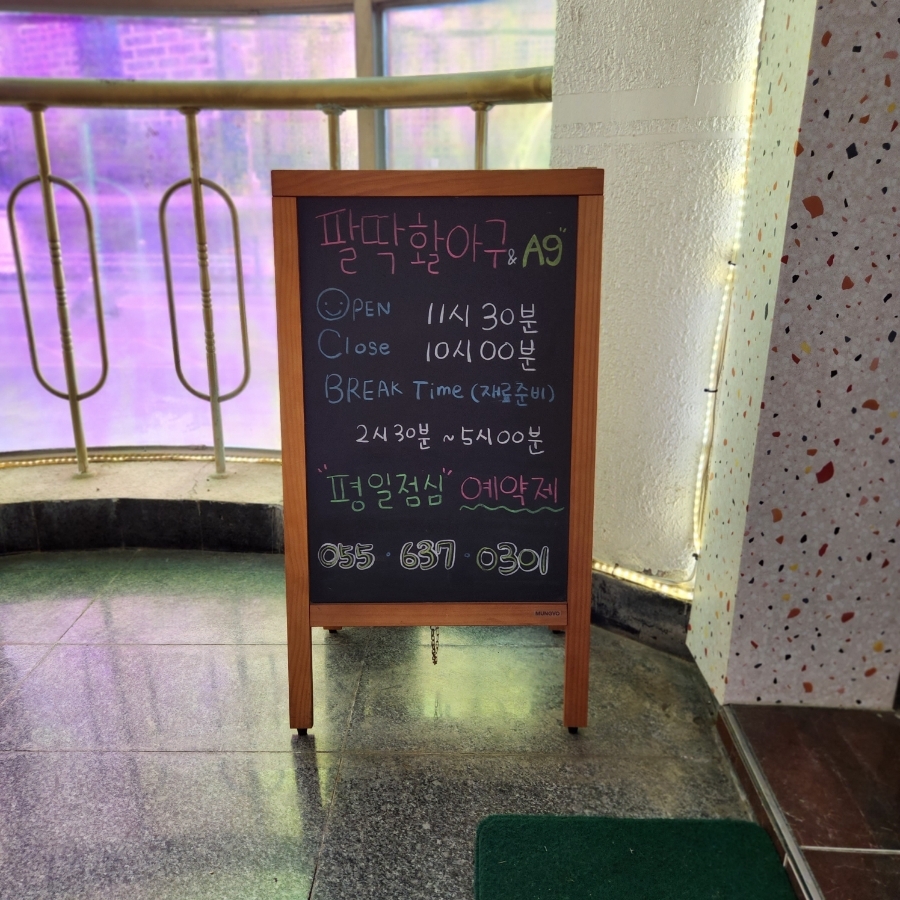 팔딱활아구 & A9"
OPEN 11시 30분
Close 10시 00분
BREAK Time (재료준비)
2시 30분 ~ 5시 00분
"평일점심" 예약제
055 - 637 - 0301
MUNGYO